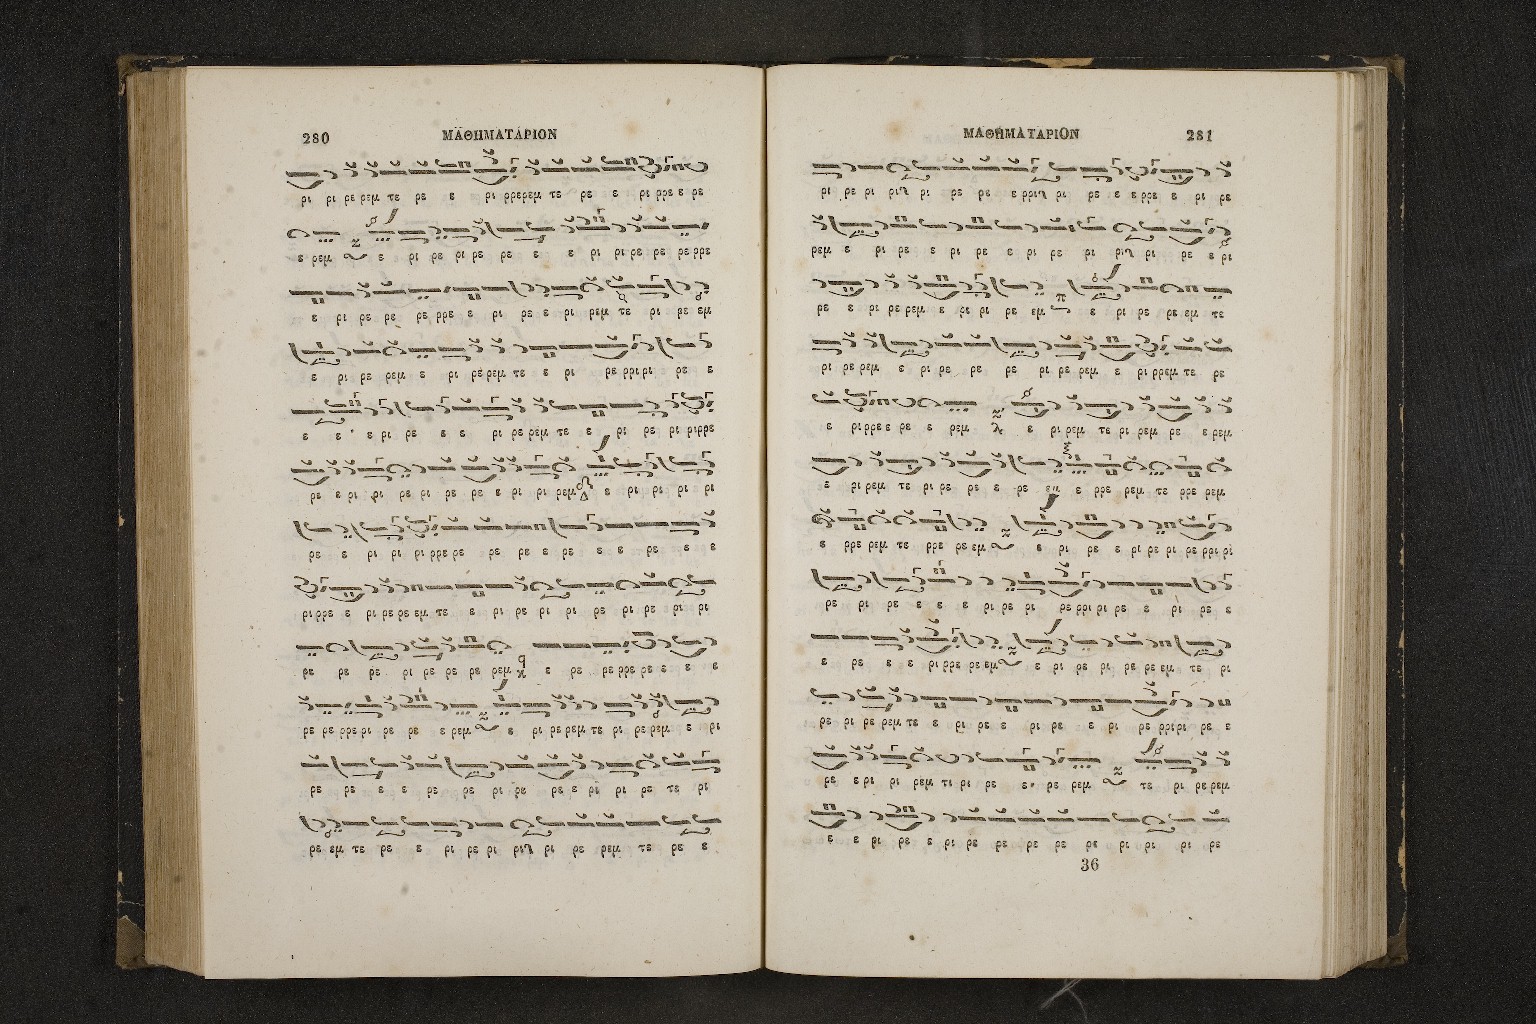 280 ΜΑΘΗΜΑΤΑΡΙΟΝ
ρι ρι ρε ρεμ τε ρε ε ρι ρρερεμ τε ρε ε ρι ρρε ε ρε
ε ρεμ ε ρι ρε ρι ρε ρε ε ε ρι ρι ρε ρε ρε ρρε
ε ρι ρε ρε ρε ρρε ε ρι ρε ε ρι ρεμ τε ρι ρε εμ
ε ρι ρε ρεμ ε ρι ρε ρεμ τε ε ρι ρε ρρι ρι ρε ε
ε ε ε ρι ρε ε ε ρι ρε ρεμ τε ε ρι ρε ρι ρι ρρε
ρε ε ρι ρι ρε ρι ρε ρε ε ρι ρι ρεμ ε ρι ρι ρι ρι
ρε ε ρι ρι ρι ρρε ρε ρε ρε ε ρε ε ε ρε ε ε
ρι ρρε ε ρι ρε ρε εμ τε ε ρι ρε ρι ρι ρε ρι ρε ρι ρι
ρε ρε ρε ρι ρε ρε ρε ρεμ ε ρε ρε ρρε ρε ε ε ε
ρε ρε ρρε ρι ρε ρε ε ρεμ ε ρι ρε ρεμ τε ρι ρε ρεμ ε ρι
ρε ρε ε ε ρε ρε ρι ρε ρε ε ρι ρι ρε τε ρι
ρε εμ τε ρε ε ρι ρε ρι ρι ρι ρε ρεμ τε ρε ε
ΜΑΘΗΜΑΤΑΡΙΟΝ 281
ρι ρε ρι ρι ρι ρε ρε ε ρρι ρι ρε ε ε ρρε ε ρι ρε
ρεμ ε ρι ρε ε ρι ρε ε ρι ρε ρι ρι ρι ρε ε ρι
ρε ε ρι ρε ρεμ ε ρε ρι ρε εμ ε ρι ρε ρε εμ τε
ρι ρε ρεμ ε ρι ρε ρε ρε ρι ρε ρεμ ε ρι ρρεμ τε ρε
ε ρι ρρε ε ρε ε ρεμ ε ρι ρεμ τε ρι ρεμ ρε ε ρεμ
ε ρι ρεμ τε ρι ρε ρε ε ρε ε ρρε ρεμ τε ρρε ρεμ
ε ρρε ρεμ τε ρρε ρε εμ ε ρι ρε ε ρι ρε ρι ρε ρρι ρι
ρε ρι ρε ε ε ε ρι ρε ρι ρε ρρι ρι ρε ε ρι ρε ε
ε ρε ε ε ρι ρρε ρε εμ ε ρι ρε ρι ρε ρε εμ τε ρι
ρε ρι ρε ρεμ τε ε ρι ρε ε ρι ρε ε ρι ρε ρρι ρι ρε ε
ρε ε ρι ρι ρεμ τι ρι ρε ε ρε ρεμ τε ρι ρε ρεμ
ε ε ρι ρε ε ρι ρε ρε ρε ρε ρι ρι ρι ρε
36